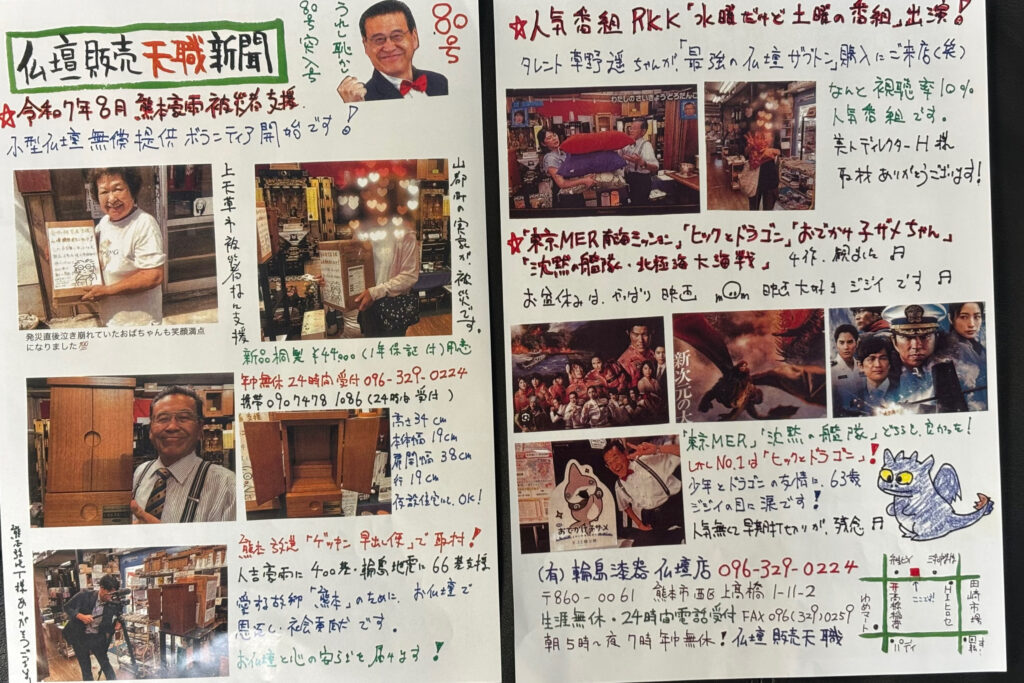 仏壇販売天職新聞
うれし恥かし
80号突入号
80号
☆令和7年8月 熊本豪雨被災者支援
小型仏壇無償提供ボランティア開始です!
上天草市被災者様に支援
山都町の実家が、被災です。
発災直後泣き崩れていたおばちゃんも笑顔満点
になりました
新品桐製¥44,900(1年保証付)用意
年中無休24時間受付096-329-0224
携帯 090 7478 1086(24時間受付)
高さ34cm
本体幅19cm
展開幅38cm
奥行19cm
仮設住宅にも、OK!
熊本放送「ゲツキン早出し便」で取材!
人吉豪雨に400基・輪島地震に66基支援
愛する故郷「熊本」のために、お仏壇で
恩返し・社会貢献です。
お仏壇と心の安らぎを届けます!
☆人気番組RKK「水曜だけど土曜の番組」出演!
タレント草野遥ちゃんが、「最強の仏壇ザブトン」購入にご来店(笑)
わたしのさいきょうどろだんご
なんと視聴率10%
人気番組です。
美人ディレクターH様
取材ありがとうございます!
☆「東京MER南海ミッション」「ヒックとドラゴン」「おでかけ子ザメちゃん」
「沈黙の艦隊・北極海大海戦」 4作、観ました♬
お盆休みは、やっぱり映画 m〇m 映画大好きジジイです♬
新次元の
おでかけ子ザメ
「東京MER」「沈黙の艦隊」どちらも、良かった!
しかしNo.1は「ヒックとドラゴン」!
少年とドラゴンの友情に、63歳
ジジイの目に涙です!
人気無くて早期打ち切りが、残念♬
(有)輪島漆器仏壇店 096-329-0224
〒860-0061 熊本市西区上高橋1-11-2
生涯無休・24時間電話受付 FAX096(329)0259
朝5時~夜7時年中無休!仏壇販売天職
ここです!
高橋稲荷
ゆめマート
HIヒロセ
田崎市場